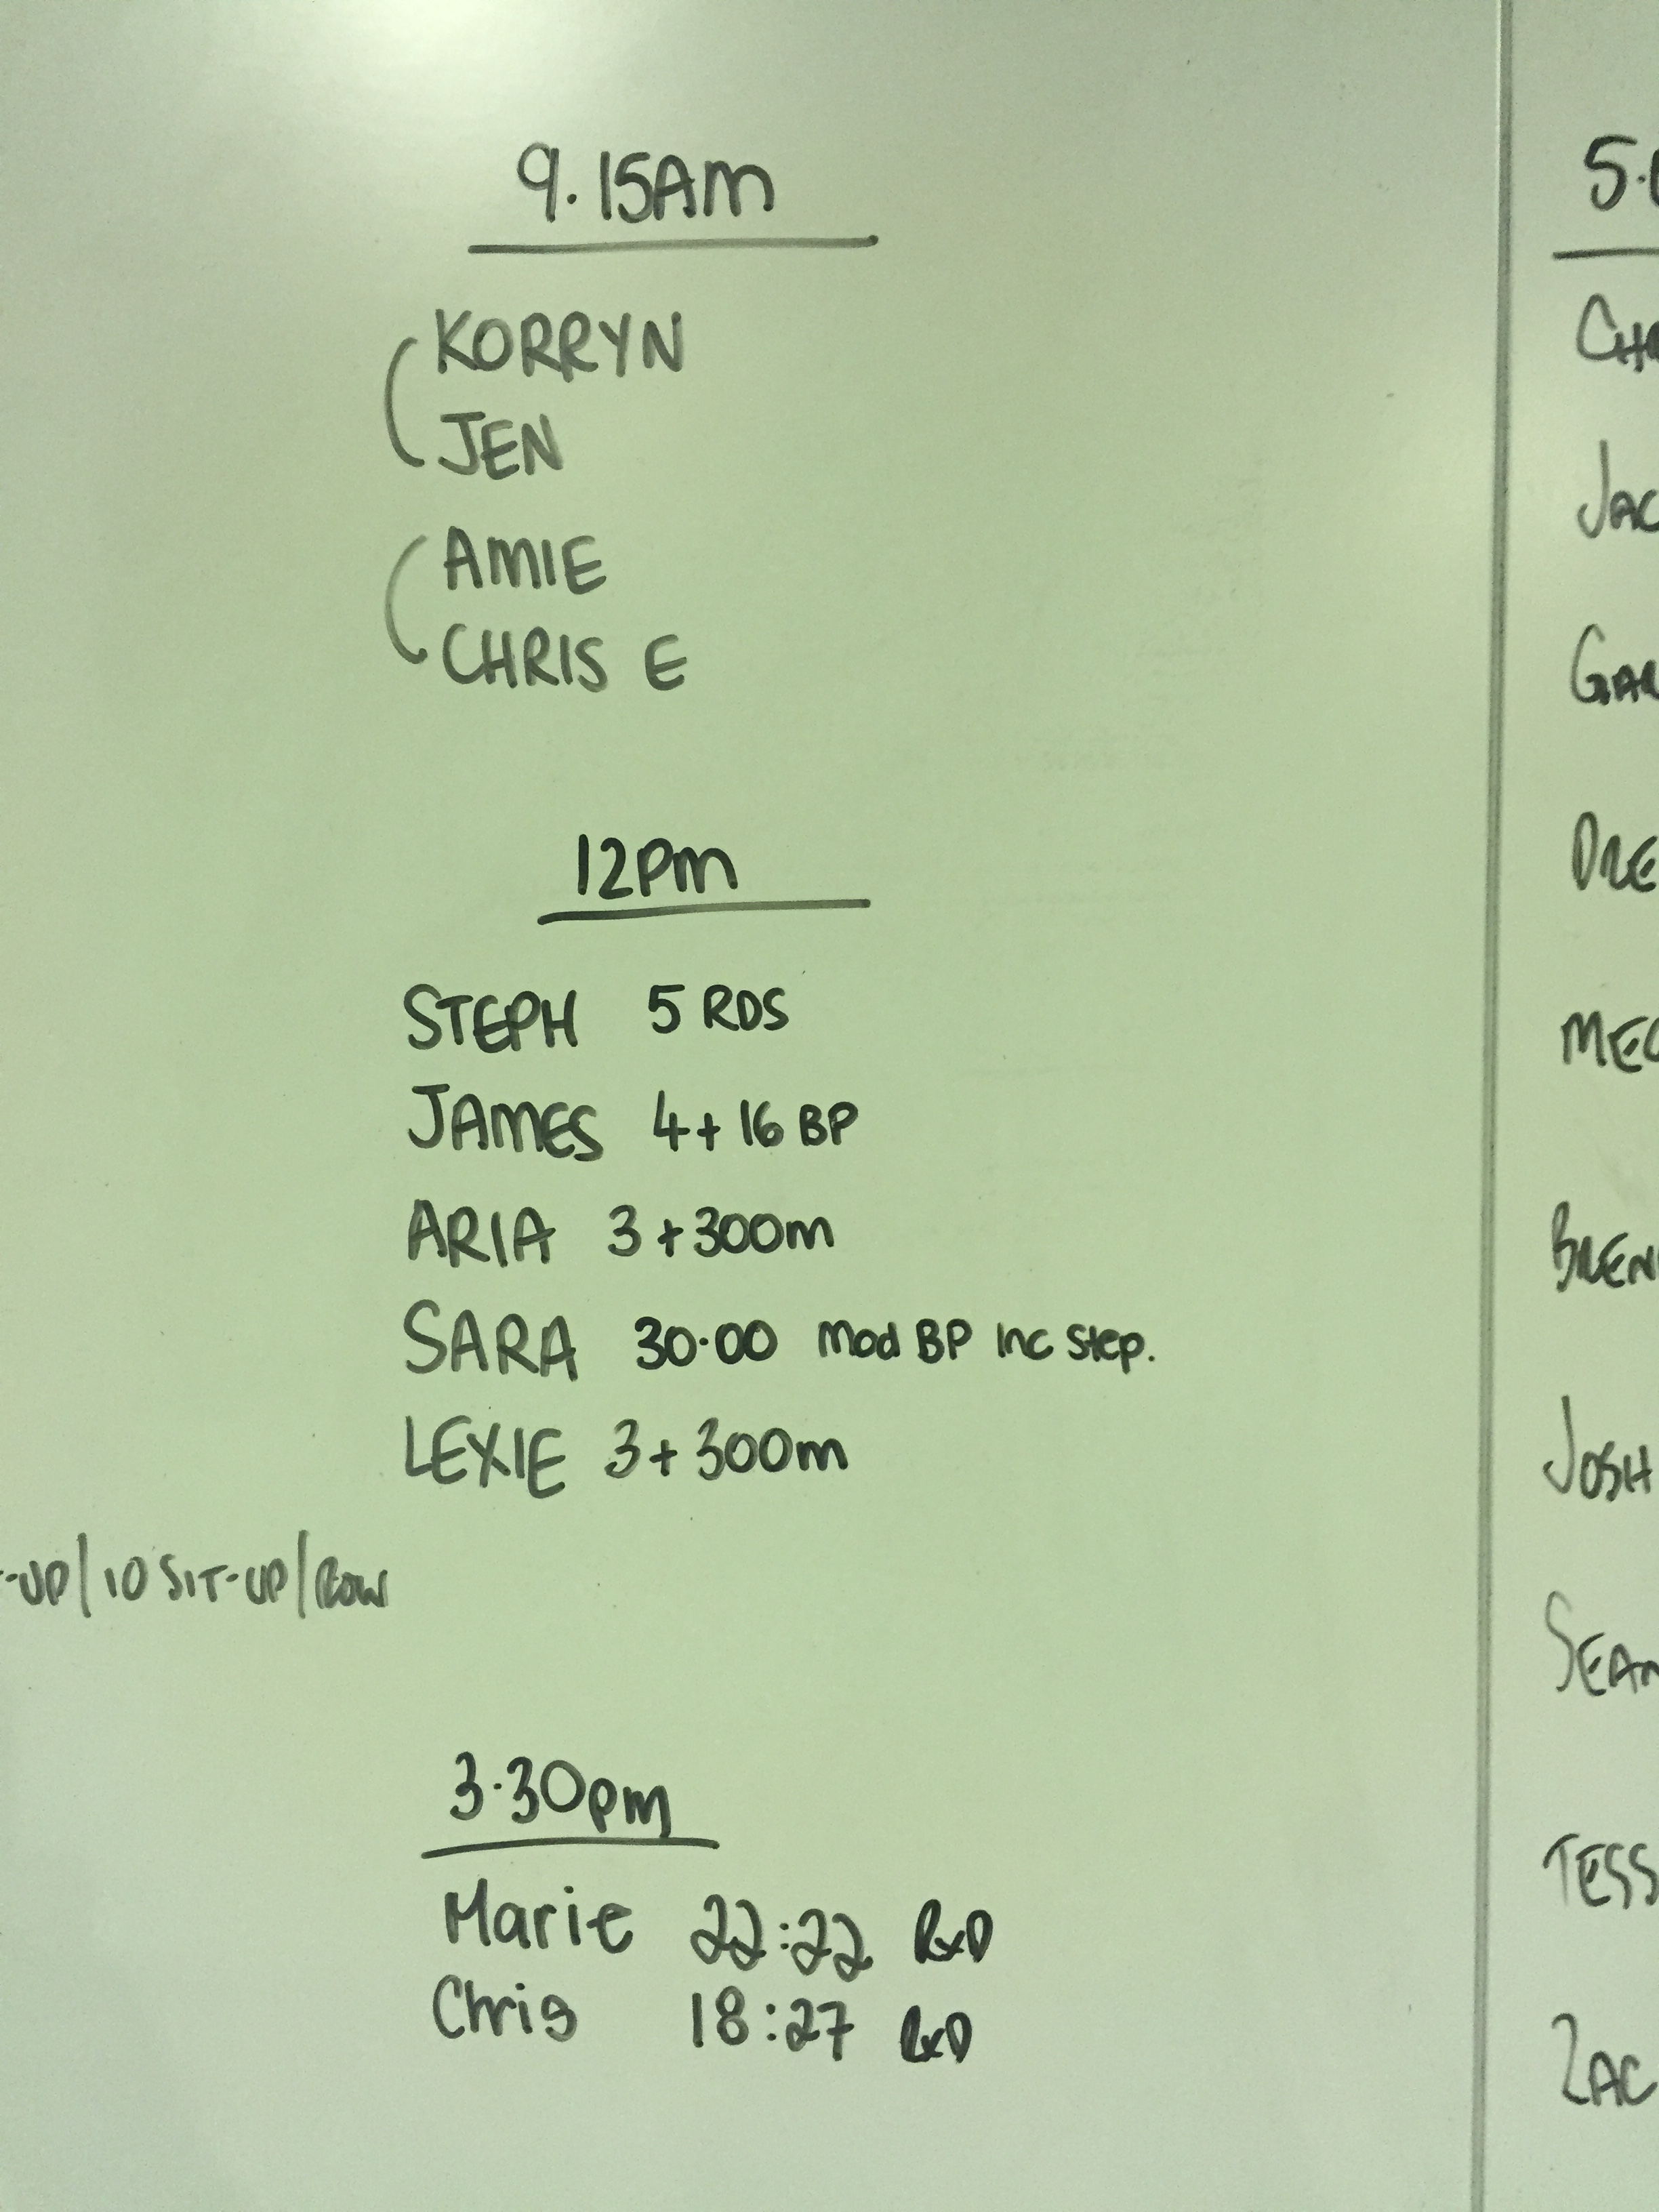 9.15AM
KORRYN
JEN
AMIE
CHRIS E
12PM
STEPH 5 RDS
JAMES 4+16 BP
ARIA 3+300m
SARA 30.00 Mod BP Inc Step.
LEXIE 3+300m
-UP/10 SIT-UP/ROW
3.30pm
Marie 22:22 RxD
Chris 18:27 RxD
JOSH
TESS
ZAC